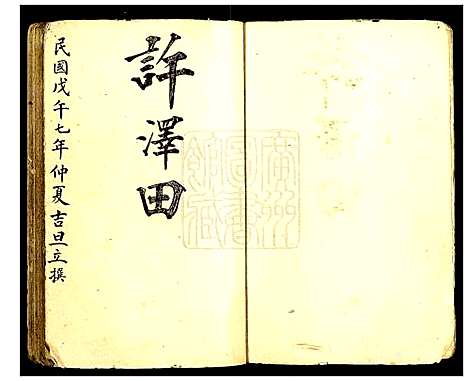 許澤田
民國戊午七年仲夏吉旦立撰